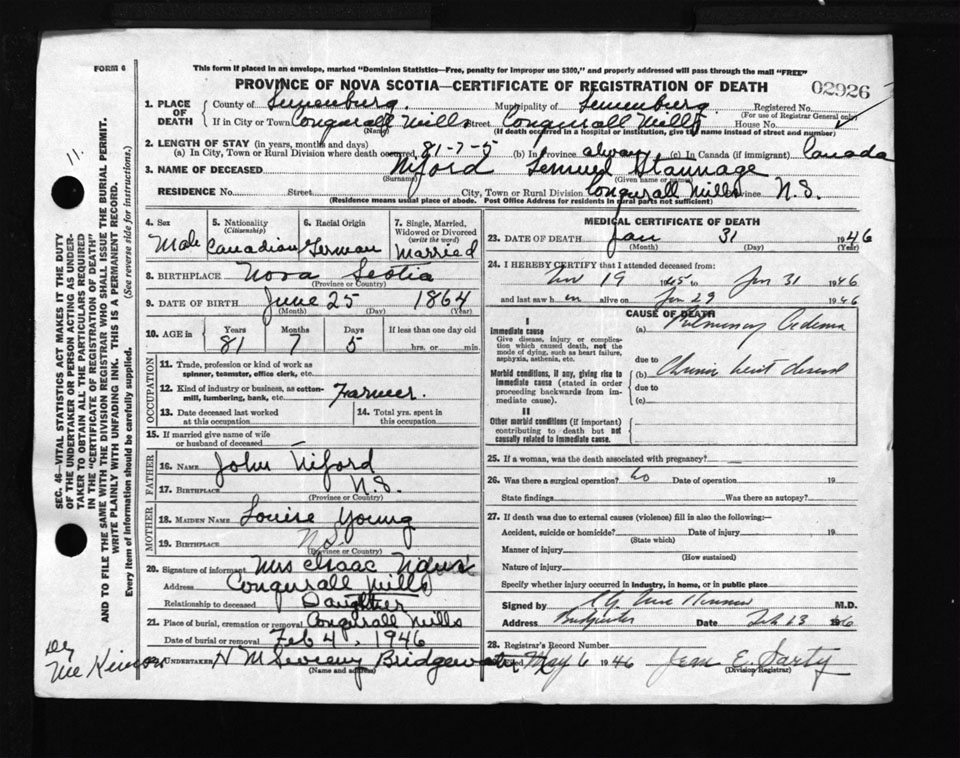 FORM 6
This form if placed in an envelope, marked "Dominion Statistics—Free, penalty for improper use $300," and properly addressed will pass through the mail "FREE"
PROVINCE OF NOVA SCOTIA—CERTIFICATE OF REGISTRATION OF DEATH
02926
1. PLACE OF DEATH
County of Lunenburg. Municipality of Lunenburg Registered No.
(For use of Registrar General only)
If in City or Town Conquerall Mills Street Conquerall Mills House No.
(Name) (If death occurred in a hospital or institution, give the name instead of street and number)
2. LENGTH OF STAY (in years, months and days)
(a) In City, Town or Rural Division where death occurred 81-7-5 (b) In Province always (c) In Canada (if immigrant) Canada
3. NAME OF DECEASED Niford Lemuel Stannage
(Surname) (Given name or names)
RESIDENCE No. Street City, Town or Rural Division Conquerall Mills Province N.S.
(Residence means usual place of abode. Post Office Address for residents in rural parts not sufficient)
4. Sex Male
5. Nationality (Citizenship) Canadian
6. Racial Origin German
7. Single, Married, Widowed or Divorced (write the word) Married
8. BIRTHPLACE Nova Scotia
(Province or Country)
9. DATE OF BIRTH June 25 1864
(Month) (Day) (Year)
10. AGE in Years 81 Months 7 Days 5 If less than one day old
hrs. or min.
OCCUPATION
11. Trade, profession or kind of work as spinner, teamster, office clerk, etc.
12. Kind of industry or business, as cotton-mill, lumbering, bank, etc. Farmer.
13. Date deceased last worked at this occupation
14. Total yrs. spent in this occupation
15. If married give name of wife or husband of deceased
FATHER
16. NAME John Niford
17. BIRTHPLACE N.S.
(Province or Country)
MOTHER
18. MAIDEN NAME Louise Young
19. BIRTHPLACE N.S.
(Province or Country)
20. Signature of informant Mrs Isaac
Address Conquerall Mills
Relationship to deceased Daughter
21. Place of burial, cremation or removal Conquerall Mills
Date of burial or removal Feb 4, 1946
22. UNDERTAKER H M Bridgewater
(Name and address)
MEDICAL CERTIFICATE OF DEATH
23. DATE OF DEATH Jan 31 1946
(Month) (Day) (Year)
24. I HEREBY CERTIFY that I attended deceased from:
19 1945 to Jan 31 1946
and last saw him alive on Jan 29 1946
CAUSE OF DEATH
I
Immediate cause (a) Pulmonary Oedema
Give disease, injury or complication which caused death, not the mode of dying, such as heart failure, asphyxia, asthenia, etc.
due to
Morbid conditions, if any, giving rise to immediate cause (stated in order proceeding backwards from immediate cause). (b) Chronic heart disease
due to
(c)
II
Other morbid conditions (if important) contributing to death but not causally related to immediate cause.
25. If a woman, was the death associated with pregnancy?
26. Was there a surgical operation? no Date of operation 19
State findings Was there an autopsy?
27. If death was due to external causes (violence) fill in also the following:—
Accident, suicide or homicide? Date of injury 19
(State which)
Manner of injury
(How sustained)
Nature of injury
Specify whether injury occurred in industry, in home, or in public place
Signed by M.D.
Address Bridgewater Date Feb 23 1946
28. Registrar's Record Number
Filed May 6 1946 Jean E. Sarty
(Division Registrar)
SEC. 46—VITAL STATISTICS ACT MAKES IT THE DUTY
OF THE UNDERTAKER OR PERSON ACTING AS UNDER-
TAKER TO OBTAIN ALL THE PARTICULARS REQUIRED
IN THE "CERTIFICATE OF REGISTRATION OF DEATH"
AND TO FILE THE SAME WITH THE DIVISION REGISTRAR WHO SHALL ISSUE THE BURIAL PERMIT.
WRITE PLAINLY WITH UNFADING INK. THIS IS A PERMANENT RECORD.
Every item of information should be carefully supplied. (See reverse side for instructions.)
11.